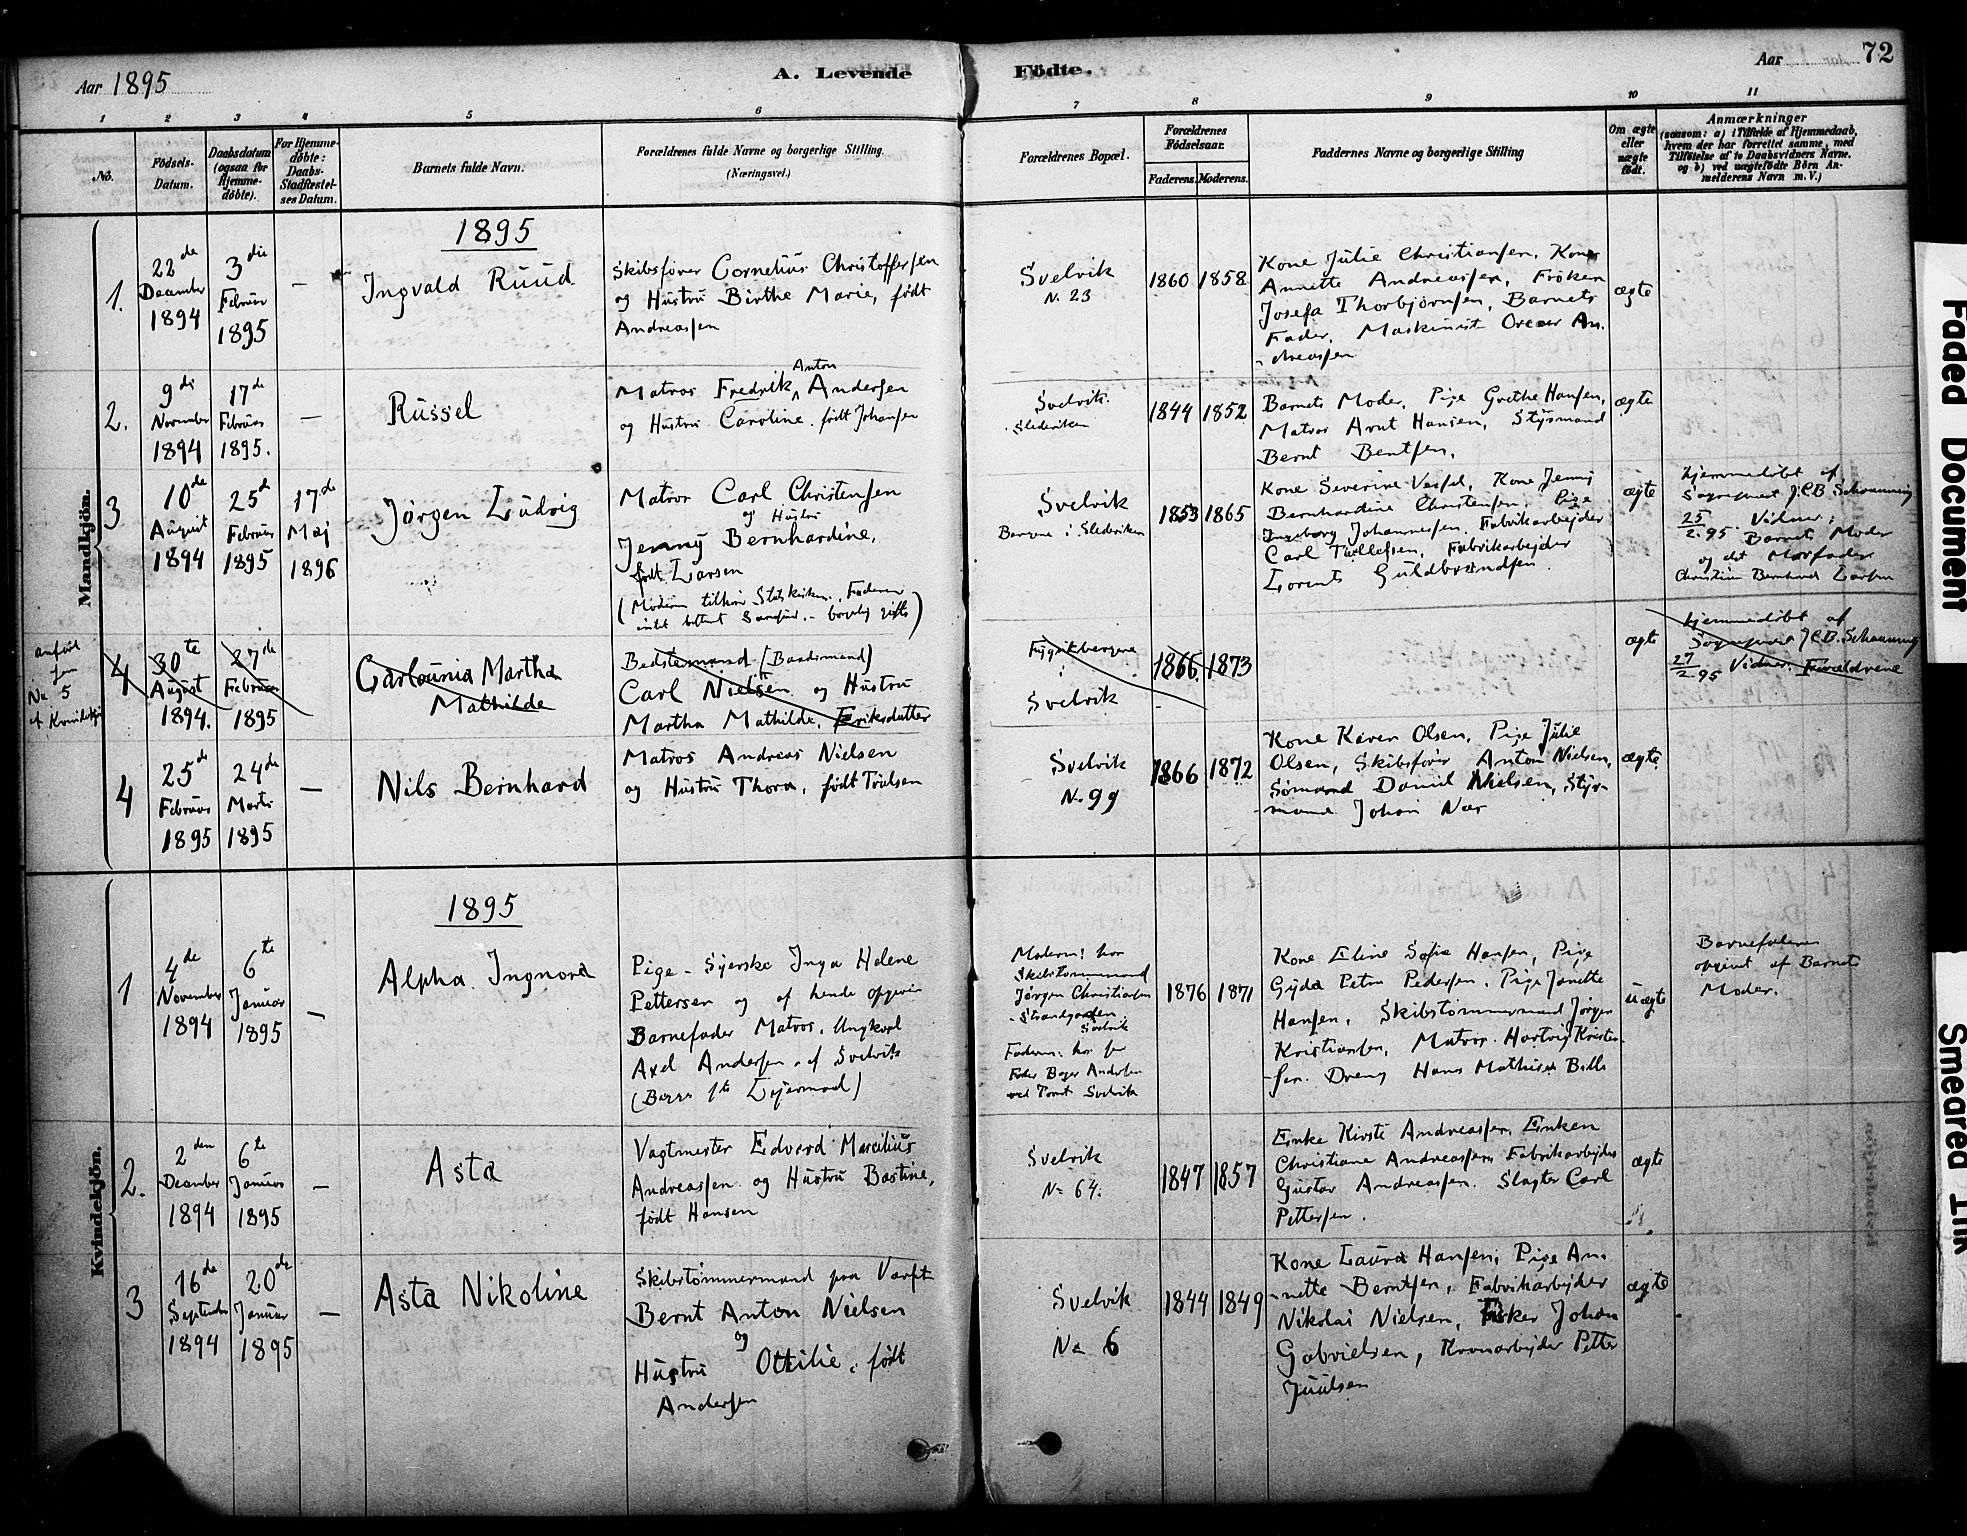 Aar 1895
A. Levende
Födte.
Aar
72
1 2 3 4 5 6 7 8 9 10 11
No.
Födsels-Datum.
Daabsdatum (ogsaa for Hjemmedöbte).
For Hjemmedöbte: Daabs-Stadfæstelses Datum.
Barnets fulde Navn.
Forældrenes fulde Navne og borgerlige Stilling.
(Næringsvei.)
Forældrenes Bopæl.
Forældrenes Födselsaar.
Faderens. Moderens.
Faddernes Navne og borgerlige Stilling
Om ægte eller uægte födt.
Anmærkninger
(saasom: a) i Tilfælde af Hjemmedaab,
hvem der har forrettet samme, med
Tilföielse af to Daabsvidners Navne,
og b) ved uægtefödte Börn Anmelderens Navn m. V.)
Mandkjön.
1895
1.
22de December 1894
3die Februar 1895
—
Ingvald Ruud
Skibsfører Cornelius Christoffersen
og Hustru Birthe Marie, født
Andreassen
Svelvik
N. 23
1860 1858
Kone Julie Christiansen, Kone
Annette Andreassen, Frøken
Josefa Thorbjørnsen, Barnets
Fader, Maskinist Oscar An-
dreassen
ægte
2.
9de November 1894
17de Februar 1895.
—
Russel
Matros Fredrik Anton Andersen
og Hustru Caroline født Johansen
Svelvik.
1844 1852
Barnets Moder, Pige Grethe Hansen,
Matros Arnt Hansen, Styrmand
Bernt Bentsen.
ægte
3
10de August 1894
25de Februar 1895
17de Maj 1896
Jørgen Ludvig
Matros Carl Christensen
og Hustru
Jenny Bernhardine,
født Larsen
(Moderen tilhør Statskirken, Faderen
intet bestemt Samfund. – borgerlig gifte)
Svelvik
1853 1865
Kone Severine Vessel, Kone Jenny
Bernhardine Christensen, Pige
Ingeborg Johannesen, Fabrikarbejder
Carl Tellefsen, Fabrikarbejder
Lorents Guldbrandsen.
ægte
Hjemmedøbt af
Sognepræst J.C.B. Schanning
25/2 95. Vidner:
Barnets Moder
og dets Morfader
Christian Bernhard Larsen
anført
som
No 5
af Kvindekjøn
4
30te August 1894.
27de Februar 1895
Carlounia Martha
Mathilde
Bedstemand (Baadsmand)
Carl Nielsen og Hustru
Martha Mathilde, Eriksdatter
Svelvik
1866. 1873
ægte
Hjemmedøbt af
Sognepræst J.C.B. Schanning
27/2 95 Vidner: Forældrene
4
25de Februar 1895
24de Marts 1895
—
Nils Bernhard
Matros Andreas Nielsen
og Hustru Thora, født Trulsen
Svelvik
No. 99
1866 1872
Kone Karen Olsen, Pige Julie
Olsen, Skibsfører Anton Nielsen,
Sømand Daniel Nielsen, Styr-
mand Johan Næs
ægte
Kvindekjön.
1895
1
4de November 1894
6te Januar 1895
—
Alpha Ingnora
Pige – Syerske Inga Helene
Pettersen og af hende opgivne
Barnefader Matros, Ungkarl
Axel Andersen af Svelvik
(Begges 1ste Lejermaal)
Moderen: hos
Skibstømmermand
Jørgen Christiansen
Strandgaden,
Svelvik
Faderen: hos sin
Fader Boger Andersen
ved Tomt Svelvik
1876 1871
Kone Eline Sofie Hansen, Pige
Gyda Petra Pedersen, Pige Janette
Hansen, Skibstømmermand Jørgen
Kristiansen, Matros Hartvig Kristen-
sen. Dreng Hans Mathias Bille
uægte
Barnefaderen
opgivet af Barnets
Moder.
2.
2den December 1894
6te Januar 1895
—
Asta
Vagtmester Edvard Marcilius
Andreassen og Hustru Bastine,
født Hansen
Svelvik
No 64.
1847 1857
Enke Kirsti Andreassen, Enken
Christiane Andreassen, Fabrikarbejder
Gustav Andreassen. Slagter Carl
Pettersen.
ægte
3
16de September 1894
20de Januar 1895
—
Asta Nikoline
Skibstømmermand paa Værft
Bernt Anton Nielsen
og
Hustru Ottilie, født
Andersen
Svelvik
No 6
1844 1849
Kone Laura Hansen, Pige An-
nette Berntsen, Fabrikarbejder
Nikolai Nielsen, Fisker Johan
Gabrielsen, Kornarbejder Petter
Juulsen
ægte
Faded Document
Smeared Ink